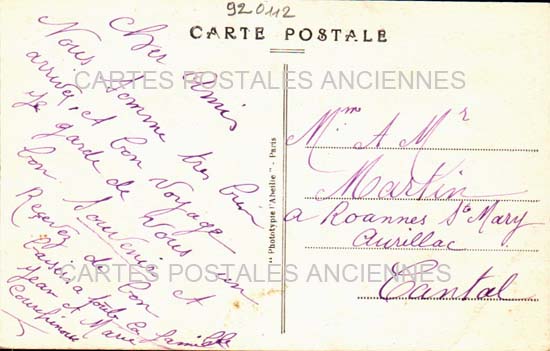 92012
CARTE POSTALE
CARTES POSTALES ANCIENNES
Cher Amis
Nous somme tres bien
arrivér et bon voyage
Je garde de Vous un
bon Souvenir et
Resevez de bon
baisers a toute la famille
Jean et Marie
"Phototypie l'Abeille" - Paris
Mme A Mr
Martin
a Roannes Ste Mary
Aurillac
Cantal
CARTES POSTALES ANCIENNES